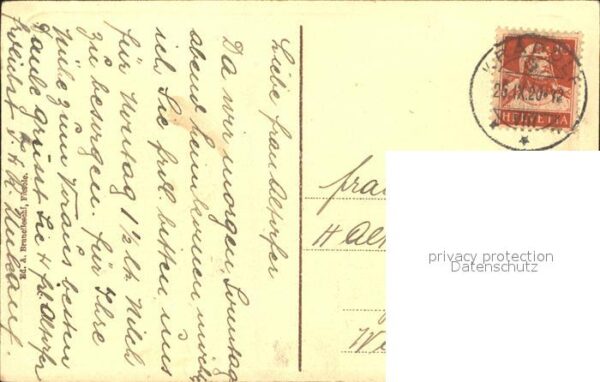 Liebe Frau Altorfer
Da wir morgen Sonntag
abend heimkommen möchte
ich Sie frdl. bitten uns
für Montag 1½ lt. Milch
zu besorgen. Für Ihre
Mühe zum Voraus besten
Danke grüsst Sie & Hr. Altorfer
freundl.
Ed. A. Brunelleschi, Fiesole.
25.IX.20
HELVETIA
Frau
H Alt
We
privacy protection
Datenschutz